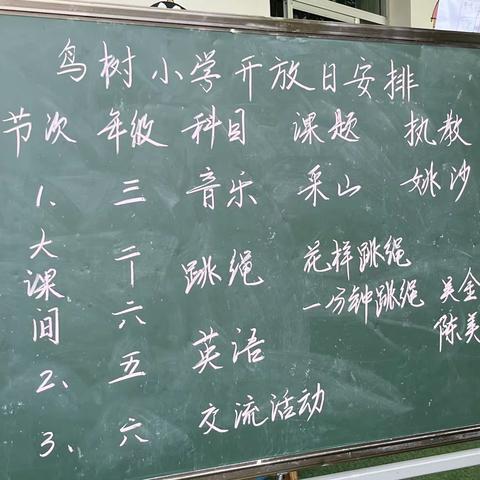 鸟树小学开放日安排
节次 年级 科目 课题 执教
1、 三 音乐 采山 姚沙
大课间 二—六 跳绳 花样跳绳
一分钟跳绳 吴金
陈美
2、 五 英语
3、 六 交流活动